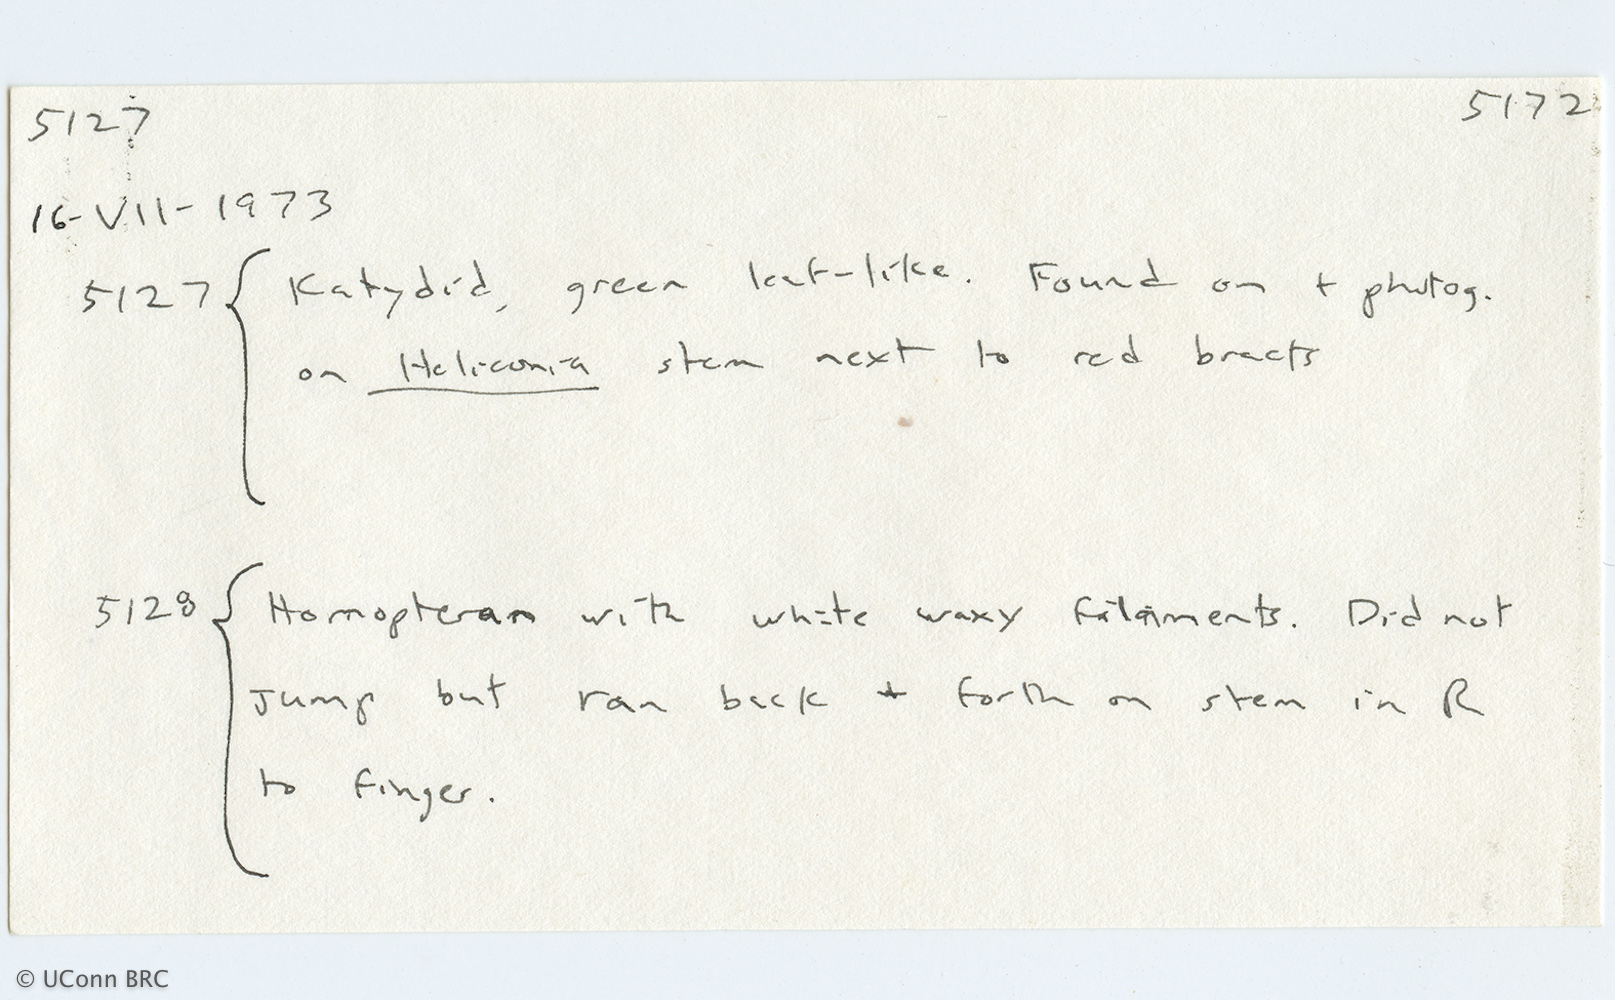 5127 5172
16-VII-1973
5127 { Katydid, green leaf-like. Found on + photog.
on Heliconia stem next to red bracts
5128 { Homopteran with white waxy filaments. Did not
jump but ran back + forth on stem in R
to finger.
© UConn BRC